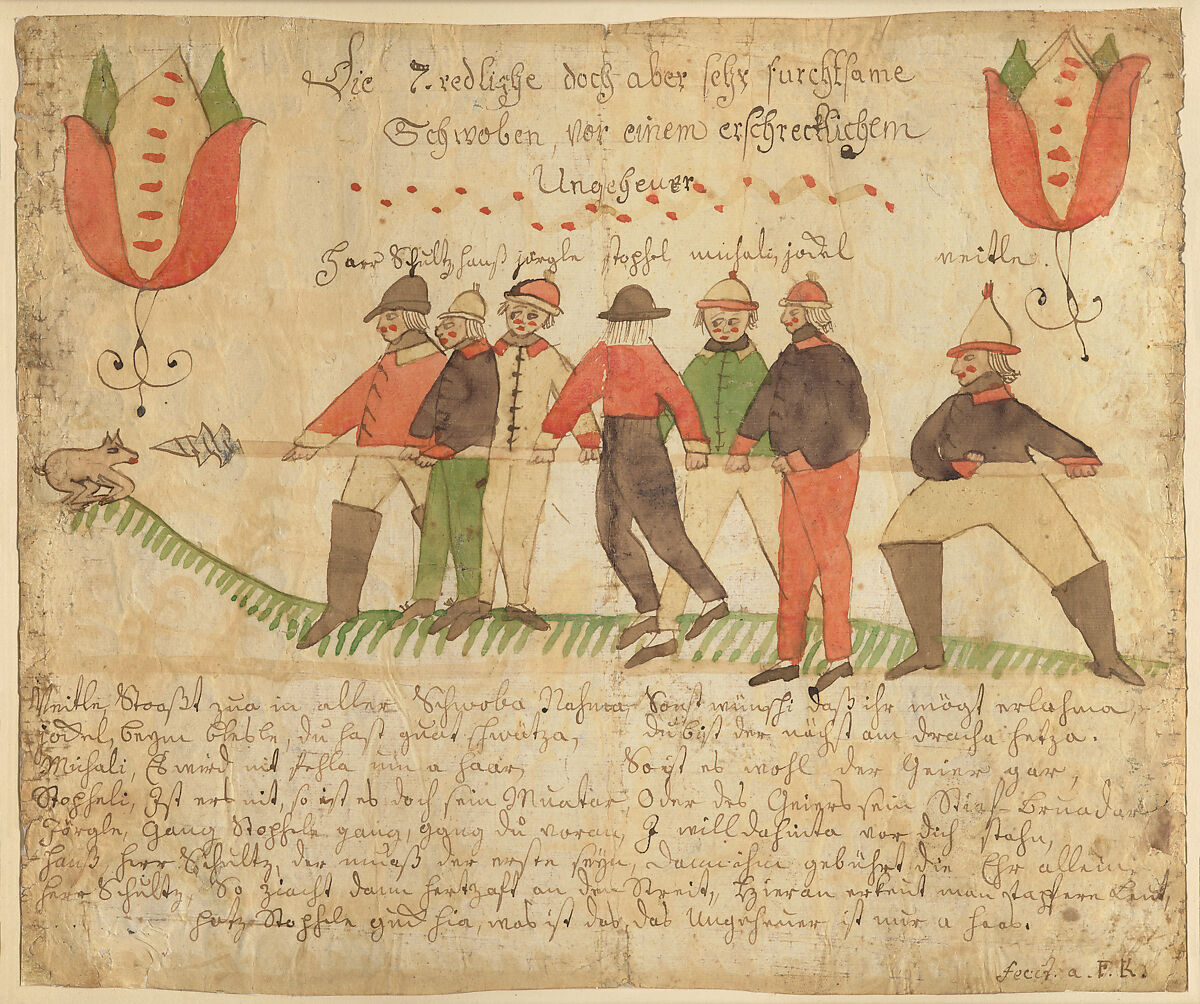 Die 7. redliche doch aber sehr furchtsame
Schwoben, vor einem erschrecklichem
Ungeheuer
Herr Schultz hanß jörgle stophel michali, jockel veitle.
Veitle Stooßt zua in aller Schwoba Nahma, Sonst wünschi daß ihr mögt erlahma,
jockel, beym blesle, du hast guat schwätza, du bist der nächst am dracha hetza.
Michali, Es wird nit fehla um a haar, So ist es wohl der Geier gar,
Stopheli, Ist ers nit, so ist es doch sein Muatar, Oder des Geiers sein Stief-bruadar
Jörgle, Gang Stophele gang, gang du voran, I will dahinta vor dich stahn,
hanß, herr Schultz, der muaß der erste seyn, dann ihm gebührt die Ehr allein,
Herr Schultz, So ziacht dann hertzaft an den Streit, hieran erkent man tapfere Leut,
hotz Stophele guck hia, was ist das, das Ungeheuer ist nur a haas.
fecit. a. F. K.